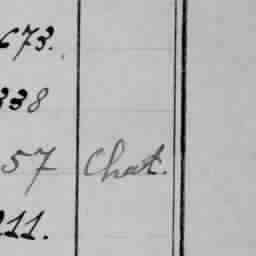 673.
338
57 Chat.
211.